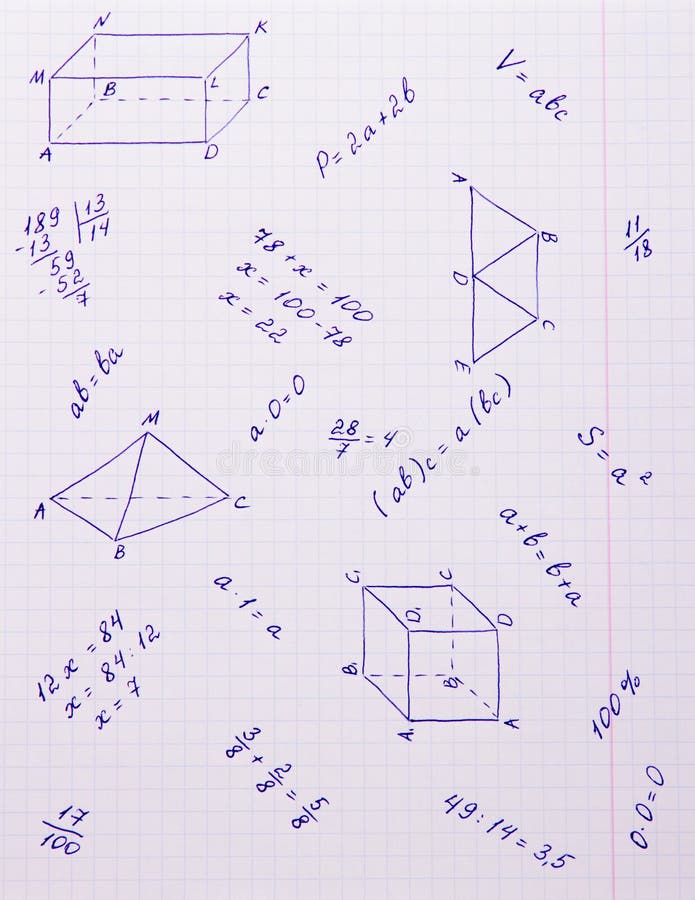 N
K
M
B
L
C
A
D
P=2a+2b
V=abc
189 | 13
-13 | 14
59
-52
7
78+x=100
x=100-78
x=22
A
B
D
C
E
11/18
ab=ba
a·0=0
28/7=4
(ab)c=a(bc)
S=a²
M
A
C
B
a+b=b+a
a·1=a
C₁
C
D₁
D
B₁
B₁
A₁
A
12x=84
x=84:12
x=7
100%
3/8+2/8=5/8
17/100
49:14=3,5
0·0=0
dreamstime